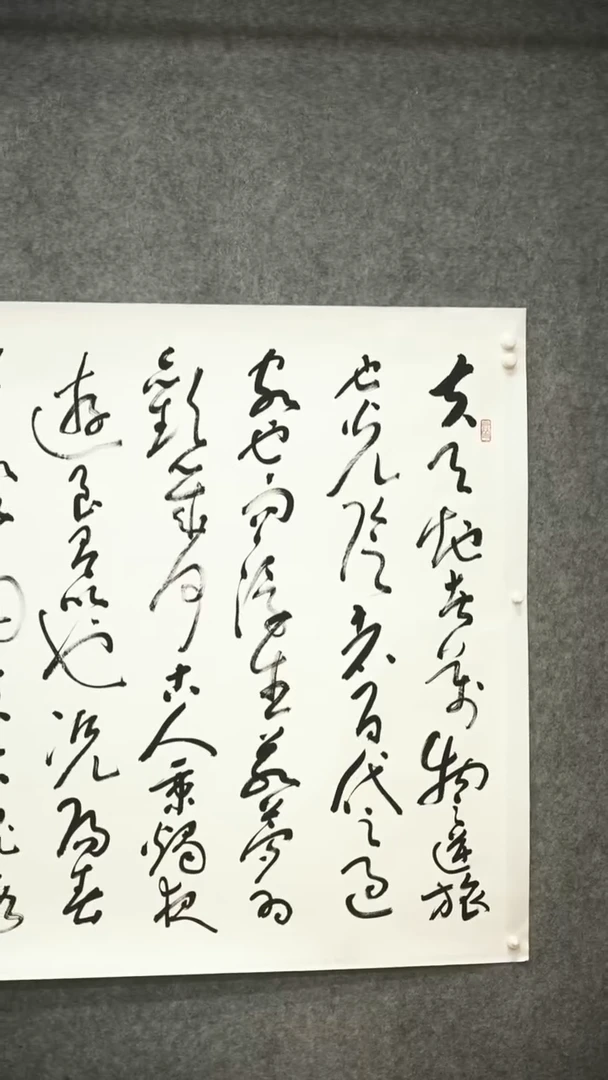 夫天地者萬物之逆旅
也光陰者百代之過
客也而浮生若夢為
歡幾何古人秉燭夜
遊良有以也況陽春